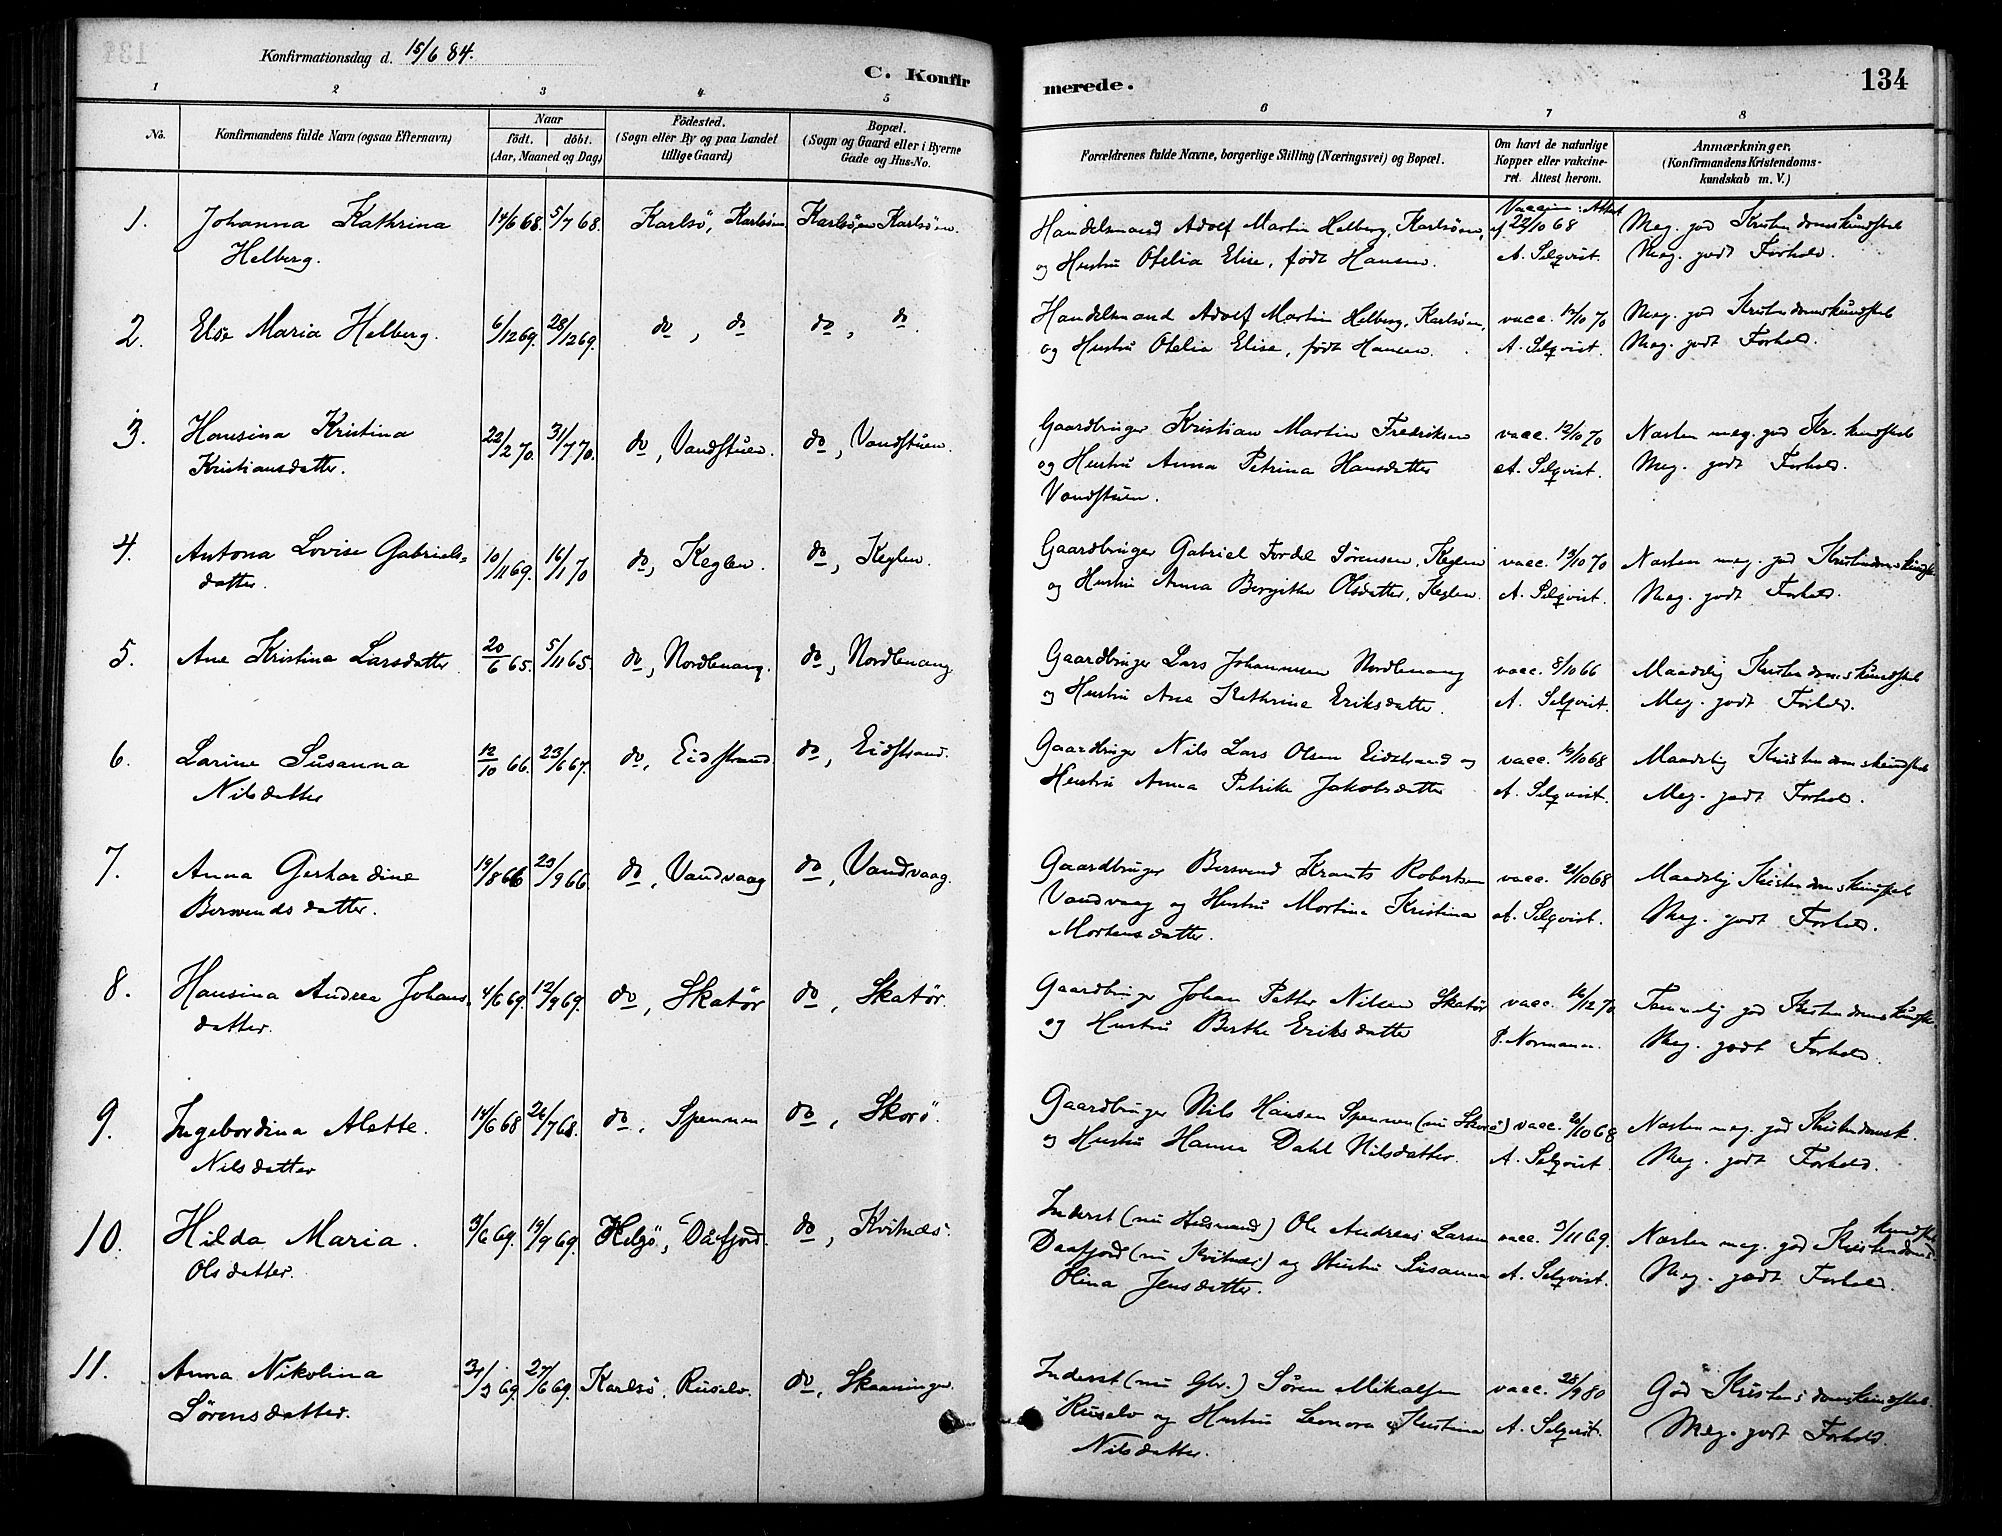 Konfirmationsdag d. 15/6 84.
C. Konfir
merede.
134
1 2 3 4 5 6 7 8
No.
Konfirmandens fulde Navn (ogsaa Efternavn)
Naar
födt. döbt.
(Aar, Maaned og Dag)
Födested.
(Sogn eller By og paa Landet
tillige Gaard)
Bopæl.
(Sogn og Gaard eller i Byerne
Gade og Hus-No.
Forældrenes fulde Navne, borgerlige Stilling (Næringsvei) og Bopæl.
Om havt de naturlige
Kopper eller vakcine-
ret. Attest herom.
Anmærkninger.
(Konfirmandens Kristendoms-
kundskab m. V.)
1. Johanna Kathrina 14/6 68. 5/7 68. Karlsö, Karlsöen Karlsöen Karlsöen.
Helberg.
Handelsmand Adolf Martin Helberg, Karlsöen, Vaccine: Attest af 22/10 68 Meg. god Kristendomskundskab
og Hustru Otelia Elise, født Hansen. A. Selqvist. Meg. godt Forhold.
2. Else Maria Helberg. 6/12 69. 28/12 69. do, do do, do.
Handelsmand Adolf Martin Helberg, Karlsöen, vacc. 12/10 70 Meg. god Kristendomskundskab
og Hustru Otelia Elise, født Hansen. A. Selqvist. Meg. godt Forhold.
3. Hansina Kristina 22/2 70. 31/7 70. do, Vandstuen. do, Vandstuen.
Kristiansdatter.
Gaardbruger Kristian Martin Fredriksen vacc. 12/10 70 Næsten meg. god Kr. kundskab
og Hustru Anna Petrina Hansdatter A. Selqvist. Meg. godt Forhold.
Vandstuen.
4. Antona Lovise Gabriels- 10/11 69. 16/1 70 do, Keglen. do, Keglen.
datter.
Gaardbruger Gabriel Fordel Sörensen, Keglen vacc. 13/10 70 Næsten meg. god Kristendomskundsk.
og Hustru Anna Bergithe Olsdatter, Keglen. A. Selqvist. Meg. godt Forhold.
5. Ane Kristina Larsdatter 20/6 65. 5/11 65. do, Nordlenang. do, Nordlenang
Gaardbruger Lars Johannesen Nordlenang vacc. 8/10 66 Maadelig Kristendomskundskab
og Hustru Ane Kathrine Eriksdatter. A. Selqvist. Meg. godt Forhold.
6. Larine Susanna 12/10 66. 23/6 67. do, Eidstrand do, Eidstrand.
Nilsdatter
Gaardbruger Nils Lars Olsen Eidstrand og vacc. 19/10 68 Maadelig Kristendomskundskab
Hustru Anna Petrike Jakobsdatter A. Selqvist. Meg. godt Forhold.
7. Anna Gerhardine 19/8 66 23/9 66. do, Vandvaag do, Vandvaag.
Bersvendsdatter.
Gaardbruger Bersvend Krants Robertsen vacc. 21/10 68 Maadelig Kristendomskundskab
Vandvaag og Hustru Mortina Kristina A. Selqvist. Meg. godt Forhold.
Mortensdatter.
8. Hansina Andrea Johans- 4/6 69. 12/9 69. do, Skatör do, Skatör.
datter.
Gaardbruger Johan Petter Nilsen Skatör vacc. 16/12 70 Temmelig god Kristendomskundsk.
og Hustru Berthe Eriksdatter P. Normann. Meg. godt Forhold.
9. Ingebordina Alette. 14/6 68 26/7 68. do, Spennen do, Skorö.
Nilsdatter
Gaardbruger Nils Hansen Spennen (nu Skorö) vacc. 20/10 68 Næsten meg. god Kristendomsk.
og Hustru Hanna Dahl Nilsdatter. A. Selqvist. Meg. godt Forhold.
10. Hilda Maria. 3/6 69. 19/9 69. Helgö, Dåfjord. do, Kvitnæs.
Olsdatter.
Inderst (nu Husmand) Ole Andreas Larsen vacc. 3/11 69. Næsten meg. god Kristendoms kundskab
Daafjord (nu Kvitnæs) og Hustru Susanna A. Selqvist. Meg. godt Forhold.
Olina Jensdatter.
11. Anna Nikolina 31/3 69. 27/6 69. Karlsö, Ruselv. do, Skaaninger.
Sörensdatter.
Inderst (nu Gbr.) Sören Mikalsen vacc. 28/9 80 God Kristendomskundskab.
Ruselv og Hustru Leonora Kristina A. Selqvist. Meg. godt Forhold.
Nilsdatter.